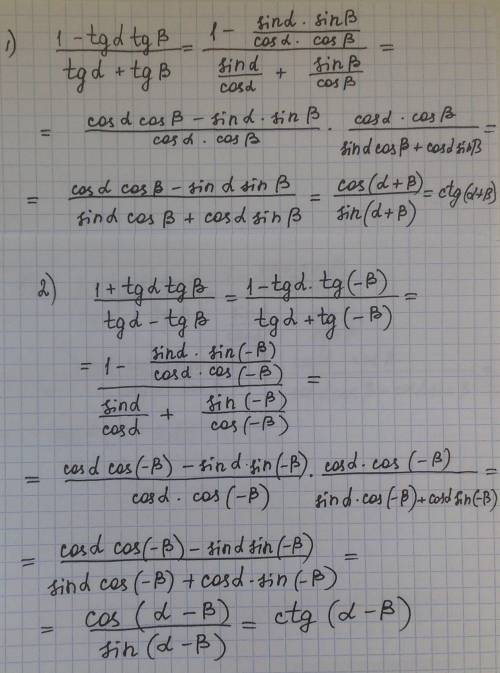 1) (1 - tgα tgβ)/(tgα + tgβ) = (1 - (sinα · sinβ)/(cosα · cosβ))/(sinα/cosα + sinβ/cosβ) =
= (cosα cosβ - sinα · sinβ)/(cosα · cosβ) · (cosα · cosβ)/(sinα cosβ + cosα sinβ) =
= (cosα cosβ - sinα sinβ)/(sinα cosβ + cosα sinβ) = cos(α+β)/sin(α+β) = ctg(α+β)
2) (1 + tgα tgβ)/(tgα - tgβ) = (1 - tgα · tg(-β))/(tgα + tg(-β)) =
= (1 - (sinα · sin(-β))/(cosα · cos(-β)))/(sinα/cosα + sin(-β)/cos(-β)) =
= (cosα cos(-β) - sinα · sin(-β))/(cosα · cos(-β)) · (cosα · cos(-β))/(sinα · cos(-β) + cosα sin(-β)) =
= (cosα cos(-β) - sinα sin(-β))/(sinα cos(-β) + cosα · sin(-β)) =
= cos(α - β)/sin(α - β) = ctg(α - β)